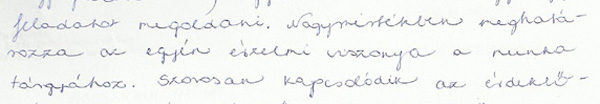 feladatot megoldani. Nagymértékben meghatá-
rozza az egyén érzelmi viszonya a munka
tárgyához. Szorosan kapcsolódik az érdeklő-